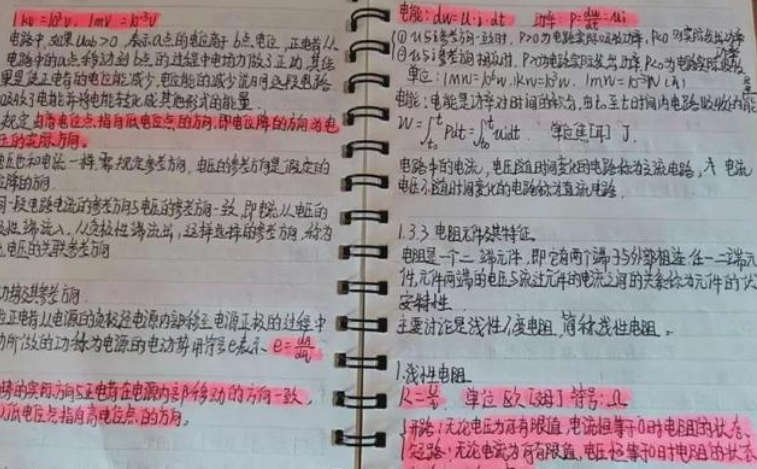 1kv=10³v, 1mv=10⁻³v
电路中,如果Uab>0,表示a点的电位高于b点电位,正电荷从
电路中的a点移动到b点的过程中电场力做了正功,其结
果是使正电荷的电位能减少,电位能的减少说明这段电路
吸收了电能并将电能转化成其他形式的能量.
规定由高电位点指向低电位点的方向,即电位降的方向为电
压的实际方向。
电压也和电流一样,需规定参考方向,电压的参考方向是假定的
位降的方向
同一段电路电流的参考方向与电压的参考方向一致,即电流从电压的
极性端流入,从负极性端流出,这样选择的参考方向,称为
电压的关联参考方向
动势及其参考方向.
正电荷从电源的负极经电源内部移至电源正极的过程中
所做的功称为电源的电动势用符号e表示. e=
势的实际方向与正电荷在电源内部移动的方向一致,
从低电位点指向高电位点的方向。
电能:dw=u·i·dt 功率:P=dw/dt=ui
①u与i参考方向一致时,P>0为电路实际吸收功率,P<0为实际发出功率
②u与i参考方向相反时,P>0为电路实际发出功率,P<0为电路实际吸收
单位:1MW=10⁶w,1kw=10³w,1mW=10⁻³W
电能:电能是功率对时间的积分,由t₀至t时间内电路吸收的电能
W=∫Pdt=∫uidt. 单位焦[耳] J.
电路中的电流,电压随时间变化的电路称为交流电路,不 电流
电压不随时间变化的电路称为直流电路.
1.3.3 电阻元件及其特征.
电阻是一个二端元件,即它有两个端子与外部相连.任一二端元
件,元件两端的电压与流过元件的电流之间的关系称为元件的伏
安特性.
主要讨论是线性不变电阻,简称线性电阻。
1.线性电阻
R=u/i. 单位 欧[姆] 符号:Ω
开路:无论电压为何有限值,电流恒等于0时电阻的状态.
短路:无论电流为何有限值,电压恒等于0时电阻的状态